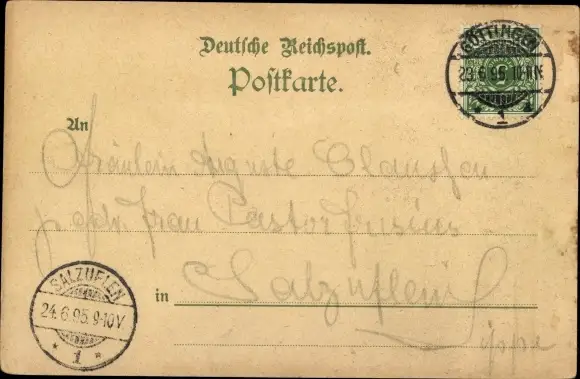 Deutsche Reichspost.
Postkarte.
GÖTTINGEN
23.6.95.10-11N.
* 1 *
An
Fräulein Auguste Claussen
p. adr. Frau Pastor
in Salzuflen
Lippe
SALZUFLEN
24.6.95.9-10V.
* 1 *